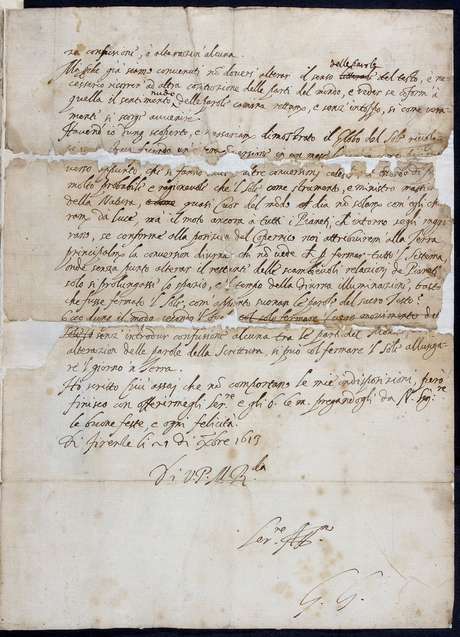 ra confusione, o alterazion' alcuna.
già che siamo convenuti non doversi alterar il senso delle parole del testo, è ne
cessario ricorrer ad altra costituzione delle parti del mondo, e veder se conforme à
quella il sentimento nudo delle parole camina rettam.e e senz' intoppo, si come vera
mente si scorge avvenire.
Havend'io dunq scoperto, e necessariam. dimostrato il Globo del Sole
facendo un' conversione in un mese
verso appunto che si fanno l'altre conversioni celesti
molto probabile e ragionevole che 'l Sole come strumento, e ministro massi
della Natura, quasi Cuor del mondo dia non solam. com' egli chia
ram. da luce, mà il moto ancora a tutti i Pianeti, che intorno segli raggi
rano, se conforme alla posizion del Copernico noi attribuirem alla Terra
principalm. la conversion diurna; chi non vede che p fermar tutto 'l Sistema,
onde senza punto alterar il restante delle scambievoli relazioni de' Pianeti
solo si prolungasse lo spazio, e 'l tempo della diurna illuminazione, basto
che fusse fermato 'l Sole, com' appunto suonan le parole del sacro Testo?
Ecco dunq. il modo secondo 'l
senz' introdur confusione alcuna trà le parti del
alterazion delle parole della Scrittura, si può col fermare 'l Sole allunga
re 'l giorno in Terra.
Hò scritto più assai che non comportano le mie indisposizioni, però
finisco con offerirmegli ser.re e gli b. le m. pregandogli da N. Sig.re
le buone feste, e ogni felicità.
Di Firenze li 21 di Xbre 1613
Di V. P. M. R.da
Ser.re Aff.mo
G. G.